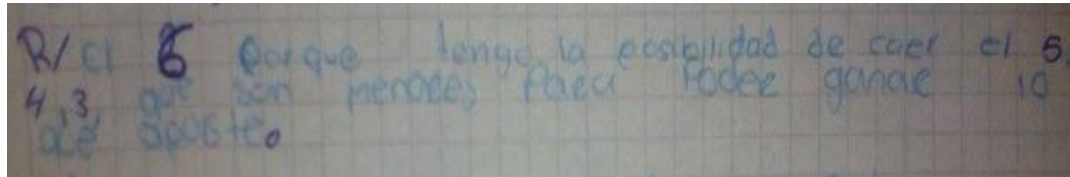 R/ el 6 porque tengo la posibilidad de caer el 5,
4, 3, que son menores para poder ganar 10
que aposte.